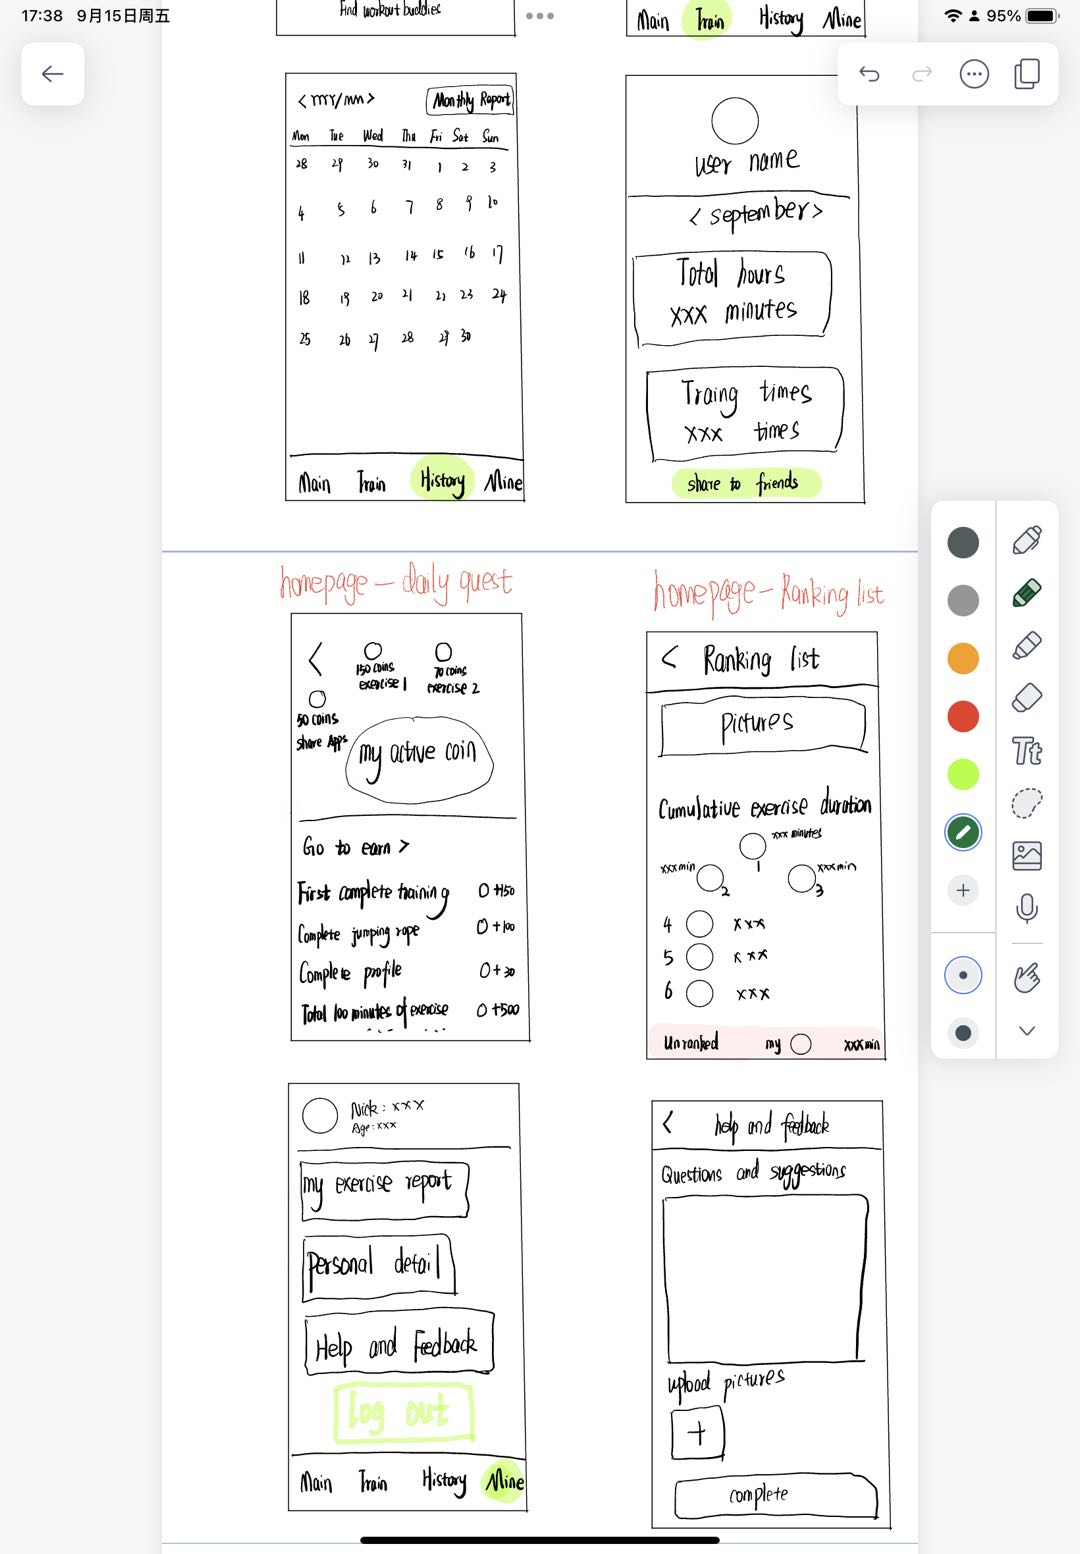 17:38 9月15日周五
95%
Find workout buddies
Main Train History Mine
< mm/nn >
Monthly Report
Mon Tue Wed Thu Fri Sat Sun
28 29 30 31 1 2 3
4 5 6 7 8 9 10
11 12 13 14 15 16 17
18 19 20 21 22 23 24
25 26 27 28 29 30
Main Train History Mine
user name
< september >
Total hours
xxx minutes
Traing times
xxx times
share to friends
homepage - daily quest
<
150 coins
exercise 1
70 coins
exercise 2
50 coins
share Apps
my active coin
Go to earn >
First complete training +150
Complete jumping rope +100
Complete profile +30
Total 100 minutes of exercise +500
homepage - Ranking list
< Ranking list
pictures
Cumulative exercise duration
xxx minutes
1
xxx min
2
xxx min
3
4 xxx
5 xxx
6 xxx
Unranked my xxx min
Nick: xxx
Age: xxx
my exercise report
Personal detail
Help and Feedback
log out
Main Train History Mine
< help and feedback
Questions and suggestions
upload pictures
+
complete
Tt